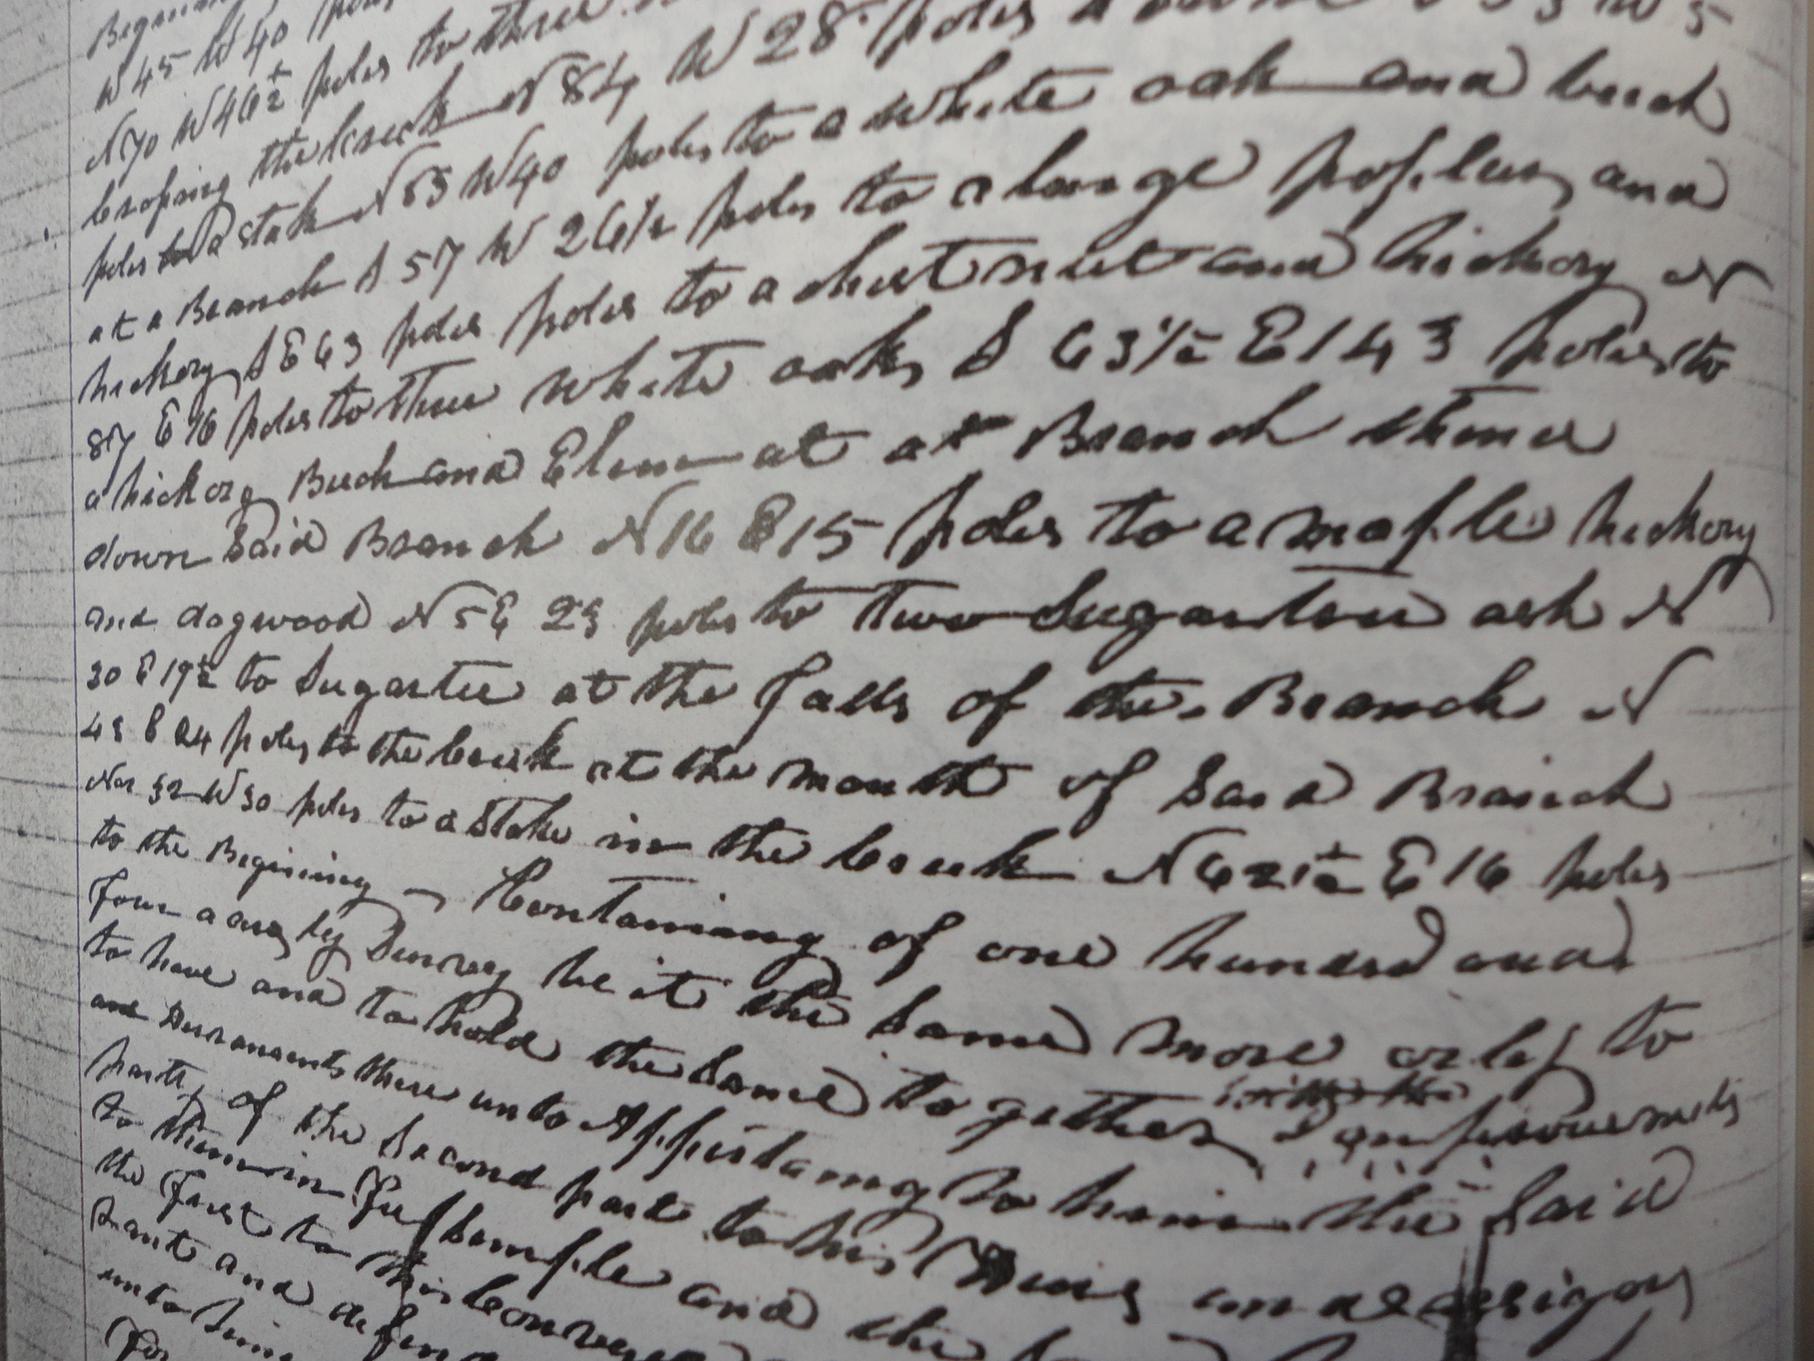 Begining
W 45 W 40 poles
N 70 W 46½ poles to three
Crossing the Creek N 84 W 28 poles
poles to a stake N 63 W 40 poles to a white oak and beech
at a Branch S 57 W 26½ poles to a large poplar and
hickory S E 63 poles poles to a chestnut and hickory N
87 E 16 poles to three white oaks S 63½ E 143 poles to
a hickory Beech and Elem at at Branch thence
down Said Branch N 16 E 15 poles to a maple hickory
and dogwood N 5 E 23 poles to two Sugartree ash N
30 E 19½ to Sugartree at the falls of the Branch N
43 E 24 poles to the Creek at the mouth of Said Branch
Nor 32 W 30 poles to a Stake in the Creek N 62½ E 16 poles
to the Begining Containing of one hundred and
four acres by Survey be it the Same more or less to
to have and to hold the Same together with the & improvements
and thereunto Appertaing to him the Said
party of the Second part to his Heirs and assigns
to them in Fee Simple and the
the first to this Conveya
rant and defend
unto him
For